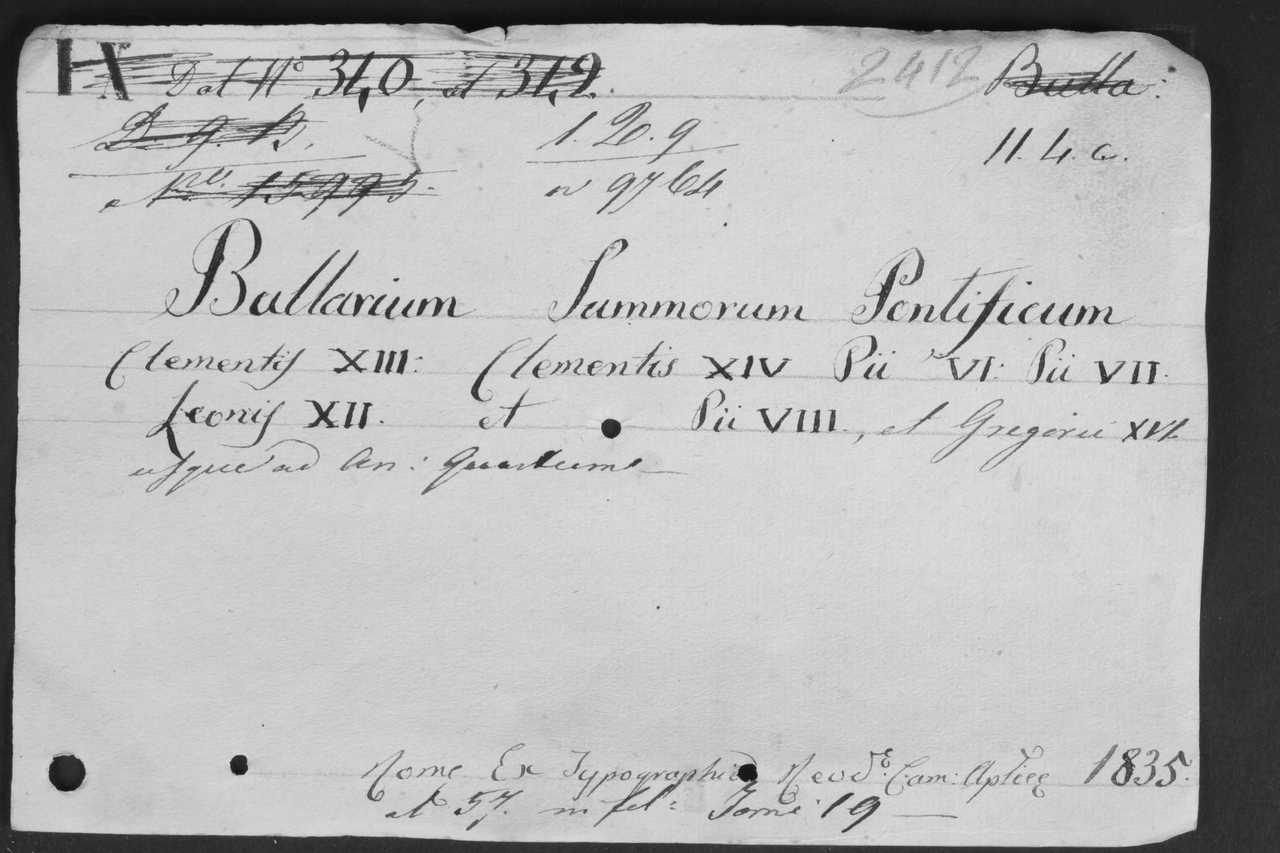 Dal N° 340, al 342. 2412 Bulla:
D. 9. B. 1. D. 9 11. 4. c.
N. 15995. n 9764
Bullarium Summorum Pontificum
Clementis XIII: Clementis XIV Pii VI: Pii VII.
Leonis XII. et Pii VIII., et Gregorii XVI.
usque ad An: Quartum
Rome Ex Typographia Revdæ: Cam: Aplicę 1835.
al 57. in fol: Tomi 19